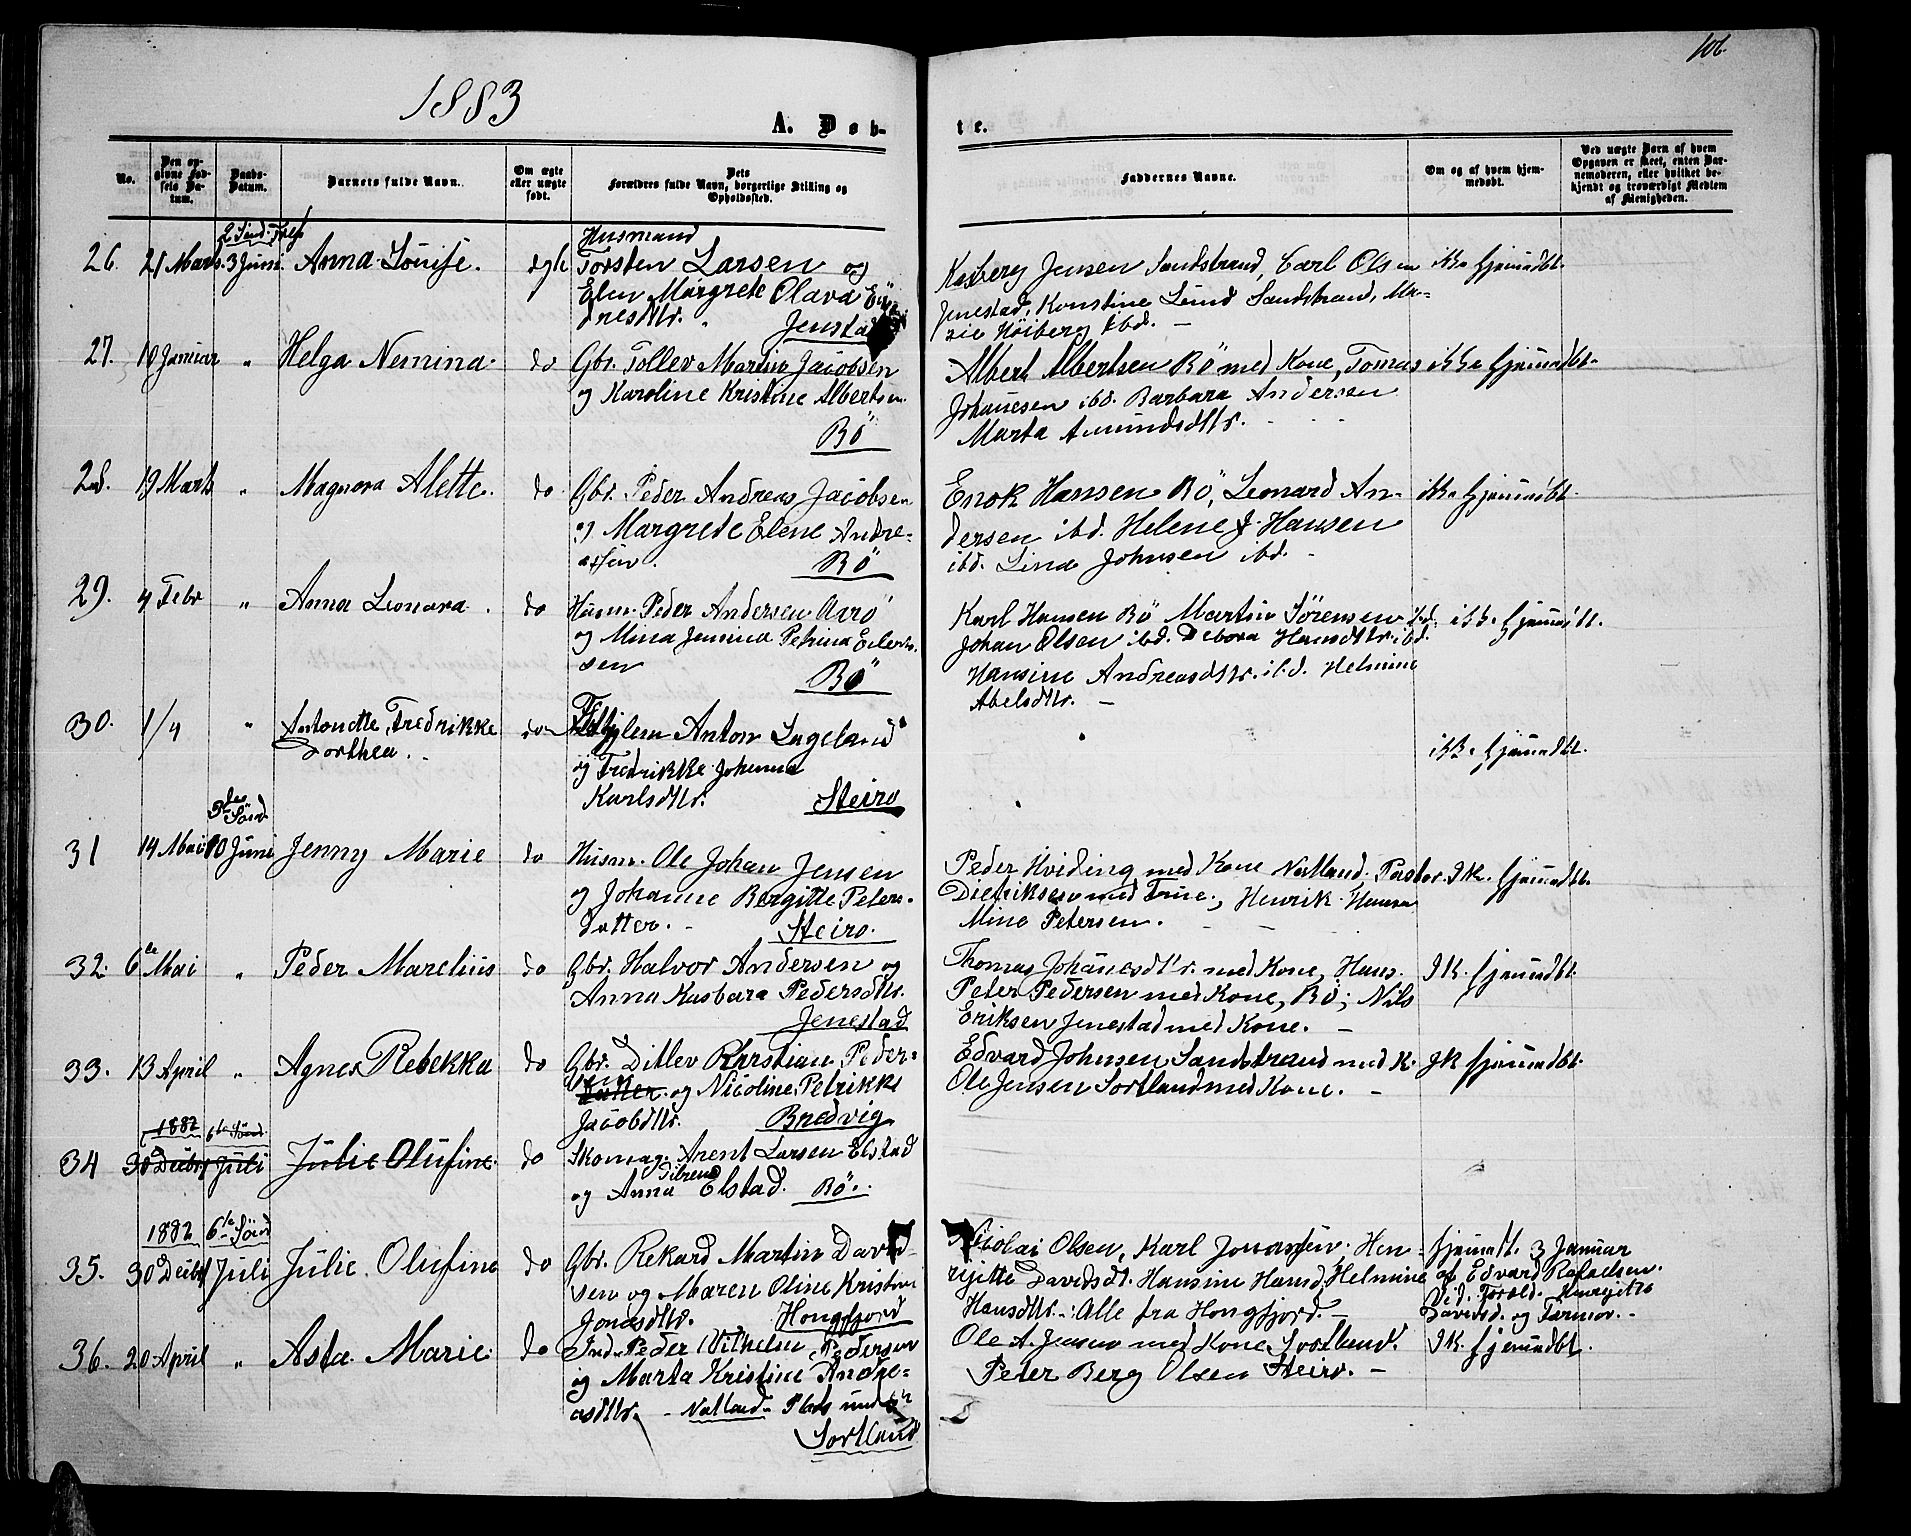 106.
1883
A. Døb-
te.
No.
Den op-
givne Fød-
sels Da-
tum.
Daabs-
Datum.
Barnets fulde Navn.
Om ægte
eller uægte
født.
Dets
Forældres fulde Navn, borgerlige Stilling og
Opholdssted.
Faddernes Navne.
Om og af hvem hjem-
medøbt.
Ved uægte Børn af hvem
Opgaven er skeet, enten Bar-
nemoderen, eller hvilket be-
kjendt og troværdigt Medlem
af Menigheden.
26. 21 Marts
3 Juni
Anna Louise.
ægte
Husmand
Torsten Larsen og
Elen Margrete Olava
dresdtr. Jenstad
Jensen Sandstrand, Carl Olsen
Jenestad, Konstine Lund Sandstrand, Ma-
rie Höiberg ibd. —
ikke hjemmedbt.
27. 10 Januar "
Helga Nemina.
do
Gbr. Tollev Martin Jacobsen
og Karoline Kristine Albertsen.
Bö
Albert Albertsen Bö med Kone, Tomas
Johanesen ibd. Barbara Andersen
Marta Amundsdtr.
ikke hjemmedbt.
28. 19 Marts "
Magnora Alette.
do.
Gbr. Peder Andreas Jacobsen
og Margrede Elene Andre-
assen. Bö
Enok Hansen Bö, Leonard An-
dersen ibd. Helene J. Hansen
ibd. Lina Johnsen ibd. -
ikke hjemmedbt.
29. 4 Febr "
Anna Leonora.
do
Husm. Peder Andersen Aarö
og Mina Jensina Petrina Eilert-
sen Bö
Karl Hansen Bö Martin Sörensen ibd.
Johan Olsen ibd. Debora Hansdtr. ibd.
Hansine Andreasdtr. ibd. Helmine
Abelsdtr. —
ikke hjemmedbt.
30. 1/4 "
Antonette Fredrikke
Dorthea.
do
Anton Lngeland
og Fredrikke Johanna
Karlsdtr. Steiro
ikke hjemmedbt.
3de
Sönd
31 14 Mai 10 Juni
Jenny Marie
do
Husm. Ole Johan Jensen
og Johanne Bergitte Peters-
datter. - Steiro.
Peder Hviding med Kone Natland. Pastor
Dietrikson med Frue, Henrik Hansen
Mina Petersen.
I k. hjemmedbt.
32. 6te Mai "
Peder Marelius
do
Gbr. Halvor Andersen og
Anna Kasbara Pedersdtr.
Jenestad
Thomas Johanesdtr. med Kone, Hans
Peter Pedersen med Kone, Bö; Nils
Eriksen Jenestad med Kone. —
I K. hjemmedbt.
33. 13 April "
Agnes Rebekka
do
Gbr. Ditlev Kristian Peder-
sen og Nicoline Petrikke
Jacobdtr. Bredvig
Edvard Johnsen Sandstrand med K.
Ole Jensen Sortland med Kone. —
I K hjemmedbt.
1882 6te Sönd.
34 30 Decbr 1 Juli
Julie Olufine.
do
Skomag. Arent Larsen Elstad
og Anna Elstad. Bö.
1882 6te Sönd
35. 30 Decbr 1 Juli
Julie Olufine
do
Gbr. Rekard Martin David-
sen og Maren Oline Kristine
Jonasdtr. Hongfjord
Nicolai Olsen, Karl Jonassen. Hen-
rijitte Davidsdt. Hansine Hansd, Helmine
Hansdtr.: Alle fra Hongfjord. —
hjemdt. 3 Januar
af Edvard Rafaelsen.
Vid. Foræld. Henrijitte
Davidsd. og Farmor. -
36. 20 April "
Asta Marie.
do
Ind. Peder Vilhelm Pedersen
og Marta Kristine Andre-
asdtr. - Natland. Plads under
Sortland
Ole A. Jensen med Kone Sortland.
Peter Berg Olsen Steiro. —
I K. hjemmedbt.